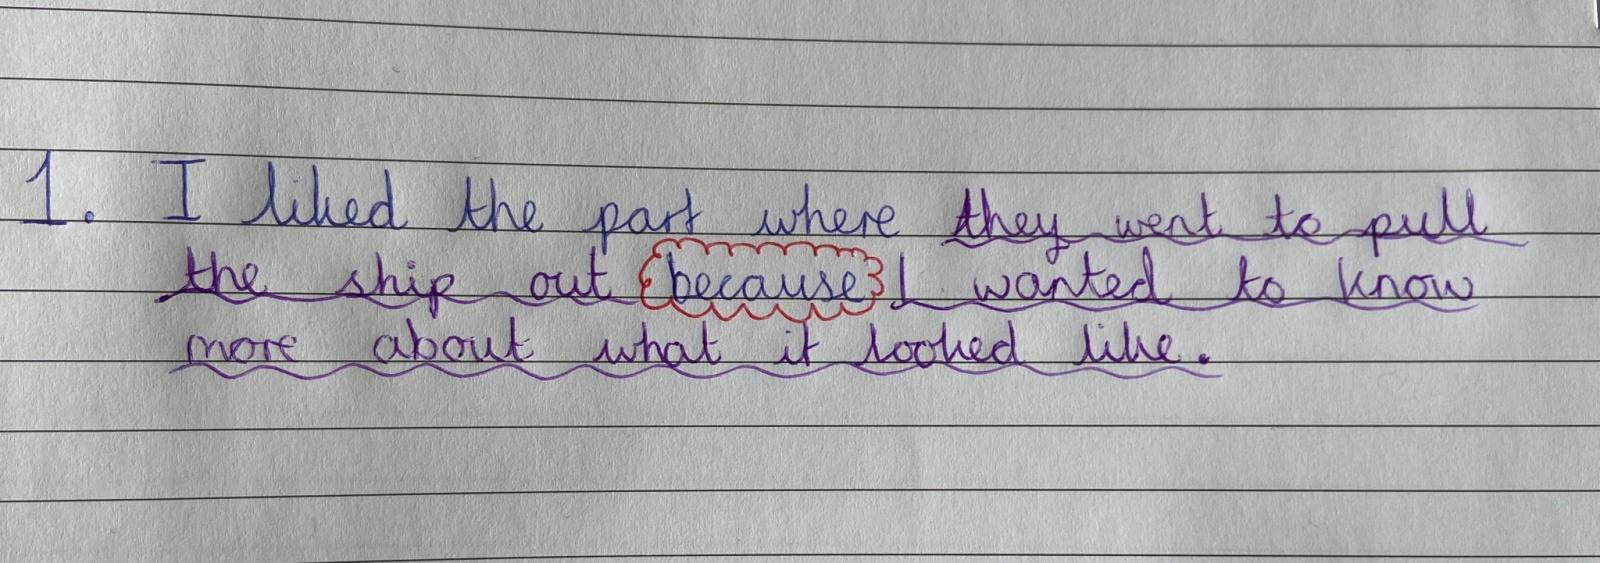 1. I liked the part where they went to pull
the ship out because I wanted to know
more about what it looked like.